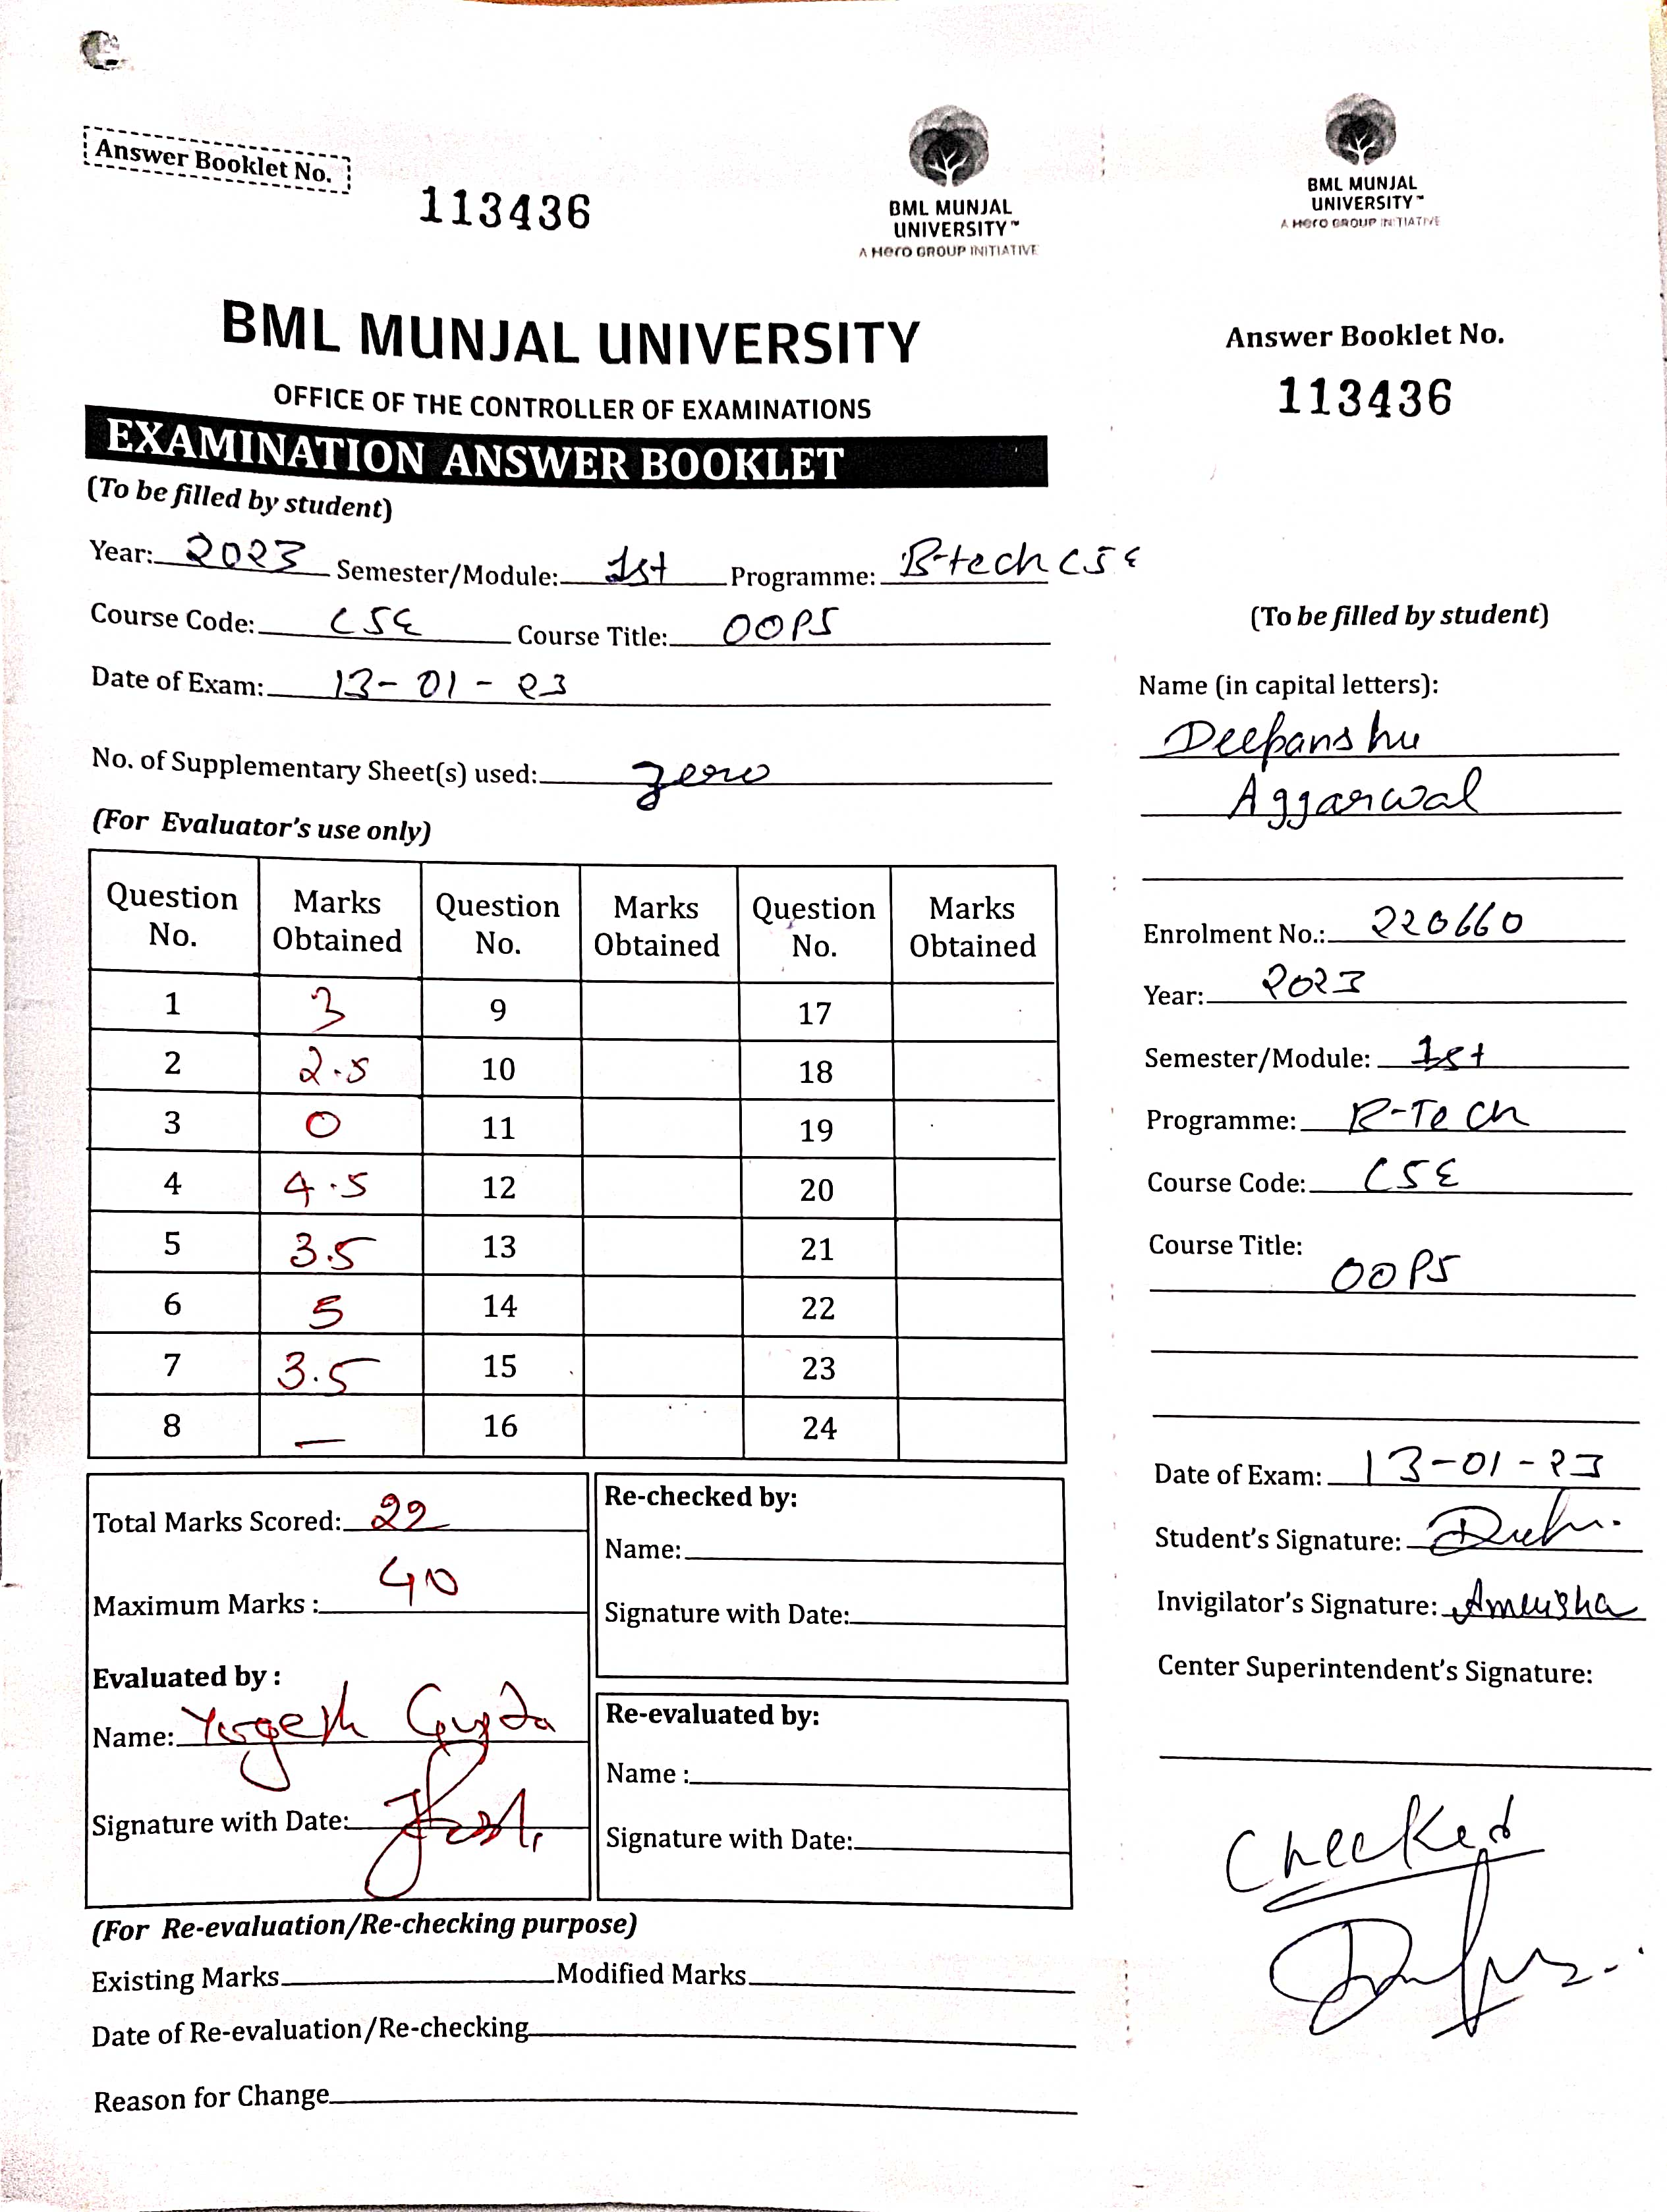 Answer Booklet No.
113436
BML MUNJAL
UNIVERSITY™
A Hero GROUP INITIATIVE
BML MUNJAL UNIVERSITY
OFFICE OF THE CONTROLLER OF EXAMINATIONS
EXAMINATION ANSWER BOOKLET
(To be filled by student)
Year: 2023 Semester/Module: 1st Programme: B-tech CSE
Course Code: CSE Course Title: OOPS
Date of Exam: 13-01-23
No. of Supplementary Sheet(s) used: zero
(For Evaluator's use only)
Question No. Marks Obtained Question No. Marks Obtained Question No. Marks Obtained
1 3 9 17
2 2.5 10 18
3 0 11 19
4 4.5 12 20
5 3.5 13 21
6 5 14 22
7 3.5 15 23
8 — 16 24
Total Marks Scored: 22
Maximum Marks : 40
Evaluated by :
Name: Yogesh Gupta
Signature with Date:
Re-checked by:
Name:
Signature with Date:
Re-evaluated by:
Name :
Signature with Date:
(For Re-evaluation/Re-checking purpose)
Existing Marks Modified Marks
Date of Re-evaluation/Re-checking
Reason for Change
BML MUNJAL
UNIVERSITY™
A Hero GROUP INITIATIVE
Answer Booklet No.
113436
(To be filled by student)
Name (in capital letters):
Deepanshu
Aggarwal
Enrolment No.: 220660
Year: 2023
Semester/Module: 1st
Programme: B-Tech
Course Code: CSE
Course Title:
OOPS
Date of Exam: 13-01-23
Student's Signature:
Invigilator's Signature:
Center Superintendent's Signature:
Checked